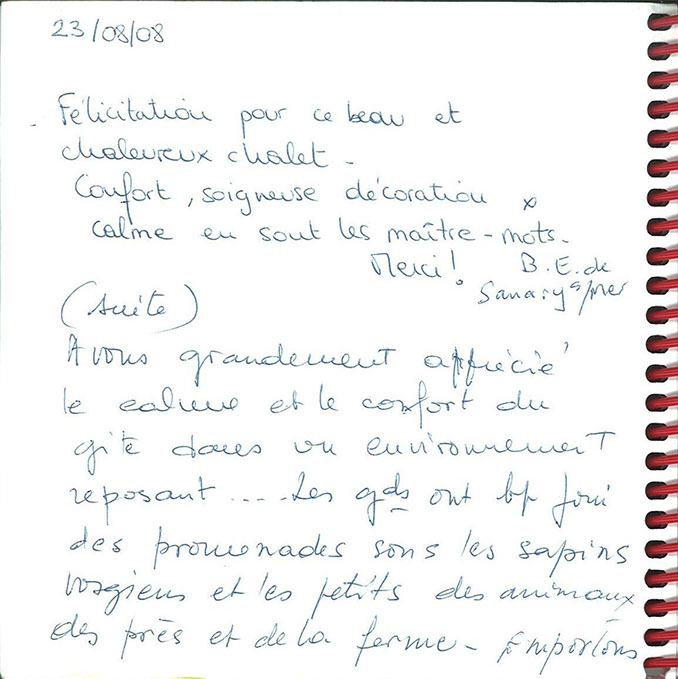 23/08/08
Félicitation pour ce beau et
chaleureux chalet -
Confort, soigneuse décoration x
calme en sont les maître-mots.
Merci! B.E. de
Sanary s/mer
(suite)
Avons grandement apprécié
le calme et le confort du
gite dans un environnement
reposant.....Les gds ont bp joui
des promenades sous les sapins
vosgiens et les petits des animaux
des près et de la ferme - Emportons